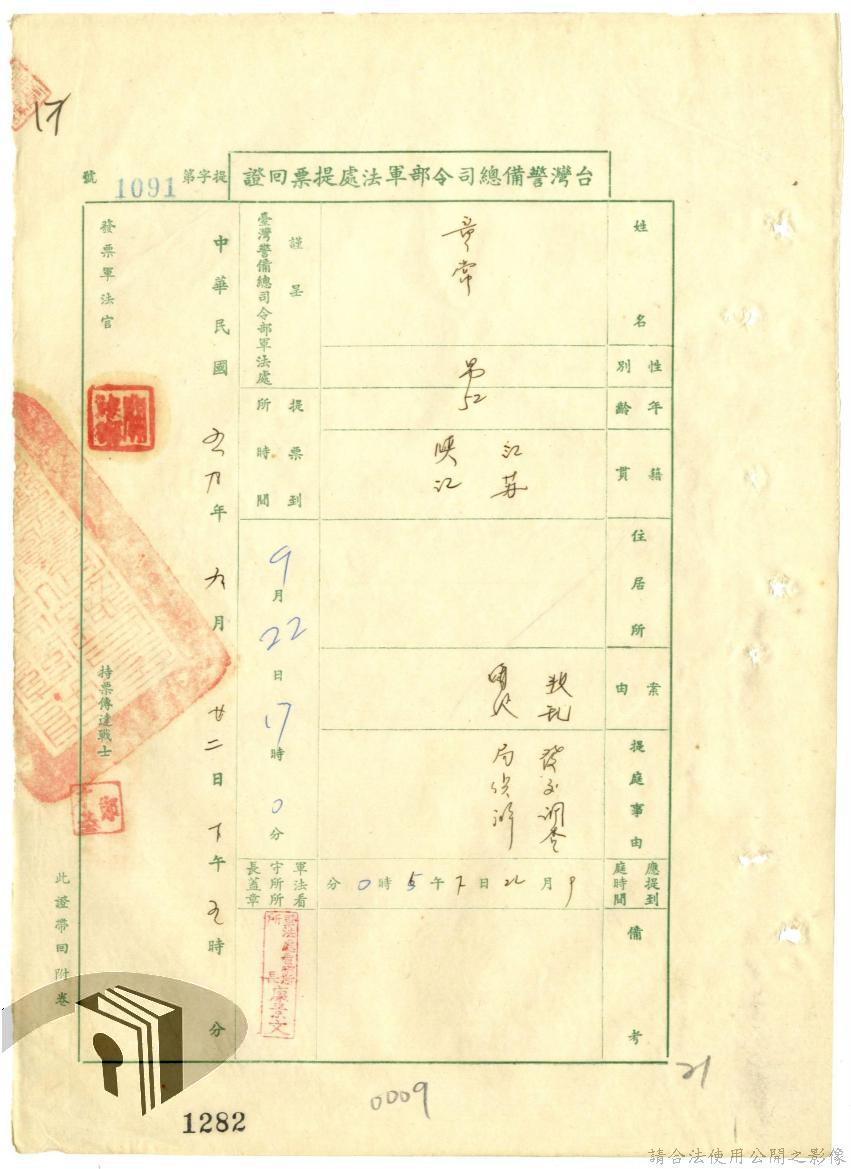 17
台灣警備總司令部軍法處提票回證
提字第1091號
姓名
章常
性別
男
年齡
52
籍貫
江蘇
映江
住居所
案由
叛亂
提庭事由
發交調查
局偵辦
應提到庭時間
9月22日下午5時0分
備考
謹呈
臺灣警備總司令部軍法處
提票到所時間
9月22日17時0分
軍法看守所所長蓋章
中華民國 年九月廿二日下午五時 分
發票軍法官
持票傳達戰士
此證帶回附卷
21
0009
1282
請合法使用公開之影像